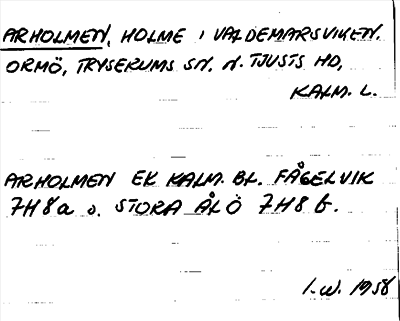 ARHOLMEN, HOLME I VALDEMARSVIKEN.
ORMÖ, TRYSERUMS SN. N. TJUSTS HD,
KALM. L.
ARHOLMEN EK KALM. BL. FÅGELVIK
7H8a o. STORA ÅLÖ 7H8b.
I.W. 1958